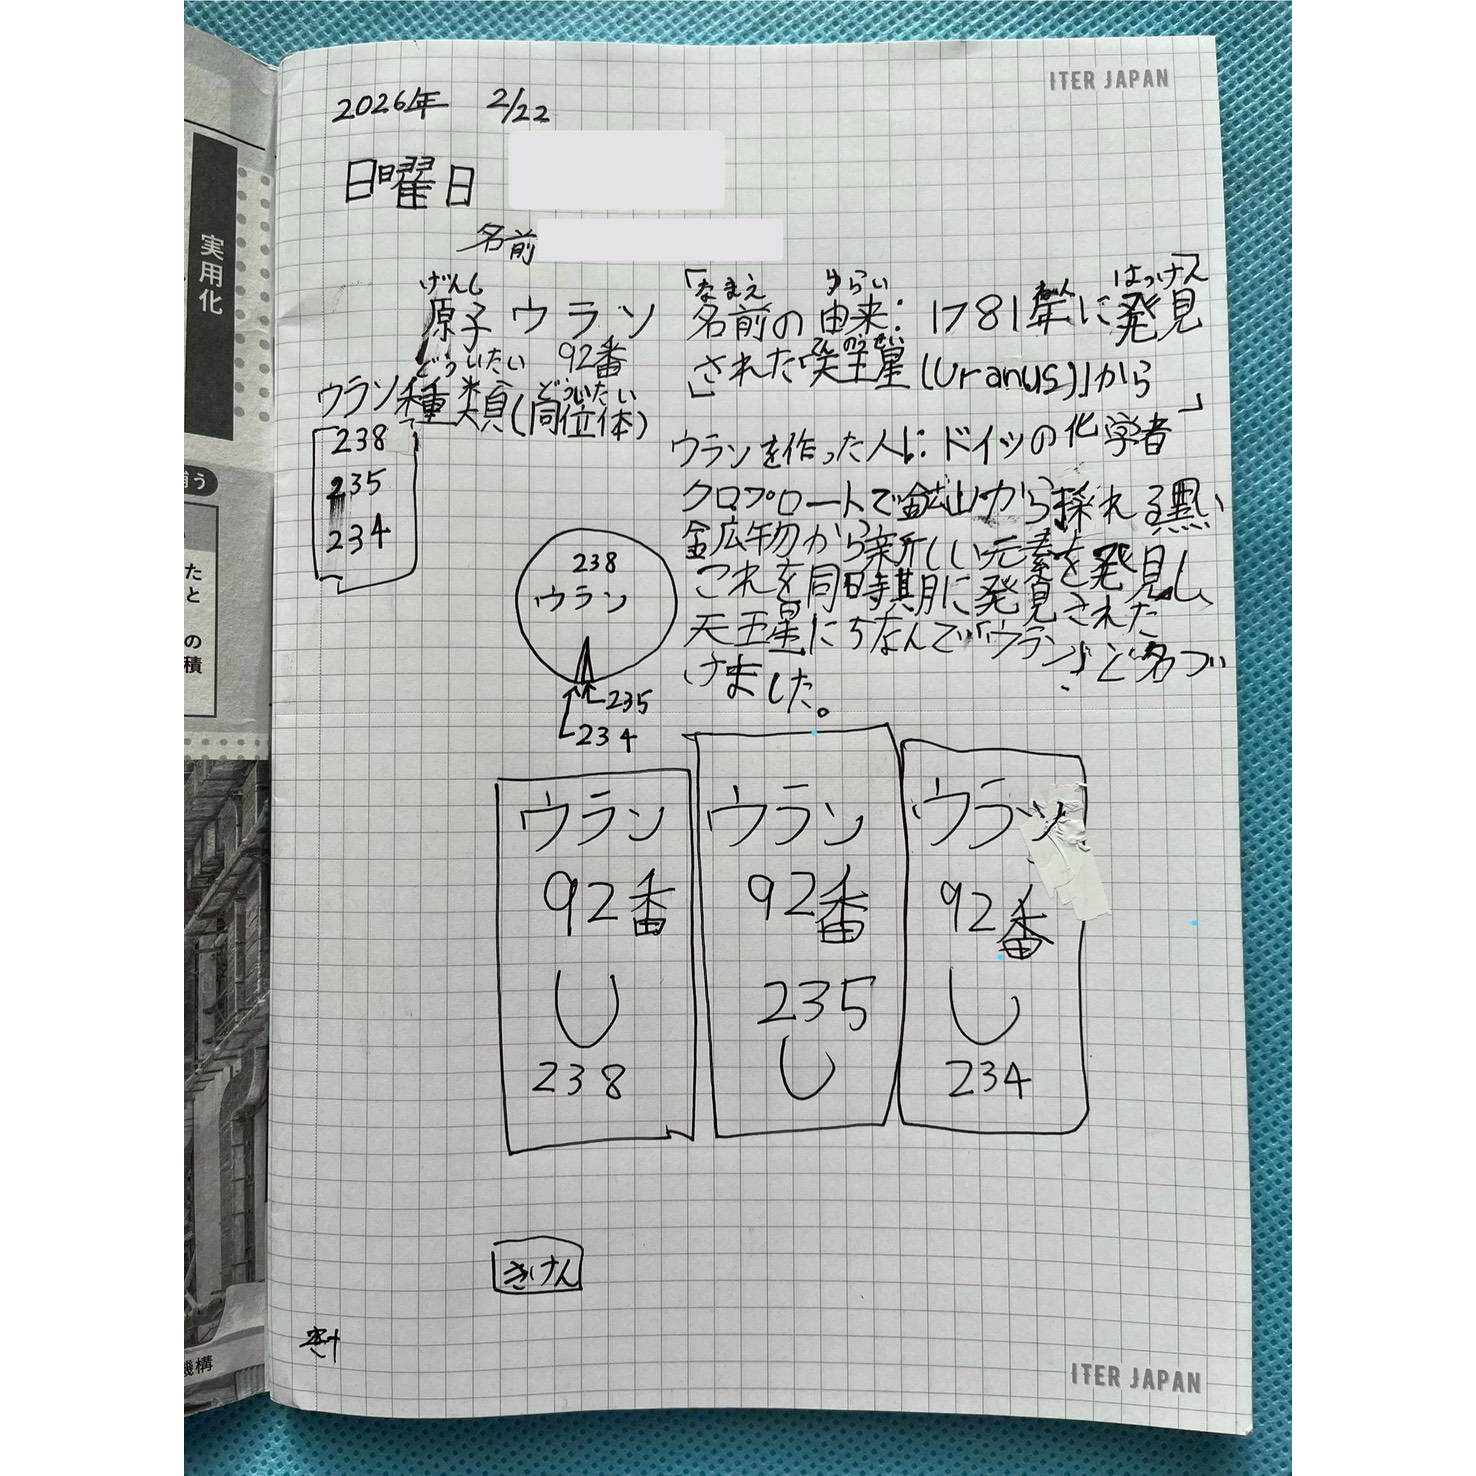 ITER JAPAN
2026年 2/22
日曜日
名前
げんし
原子 ウラン
92番
どういたい
ウラン種類(同位体)
どういたい
238
235
234
238
ウラン
235
234
「なまえ ゆらい はっけん
名前の由来:1781年に発見
ねん
てんのうせい
された「天王星(Uranus)」から
」
ウランを作った人は:ドイツの化学者
クロプロートで鉱山から採れる黒い
鉱物から新しい元素を発見し
これを同時期に発見された
天王星にちなんで「ウラン」と名づ
けました。
ウラン
92番
U
238
ウラン
92番
235
U
ウラン
92番
U
234
きけん
ITER JAPAN
実用化
補う
たと
の
積
機構